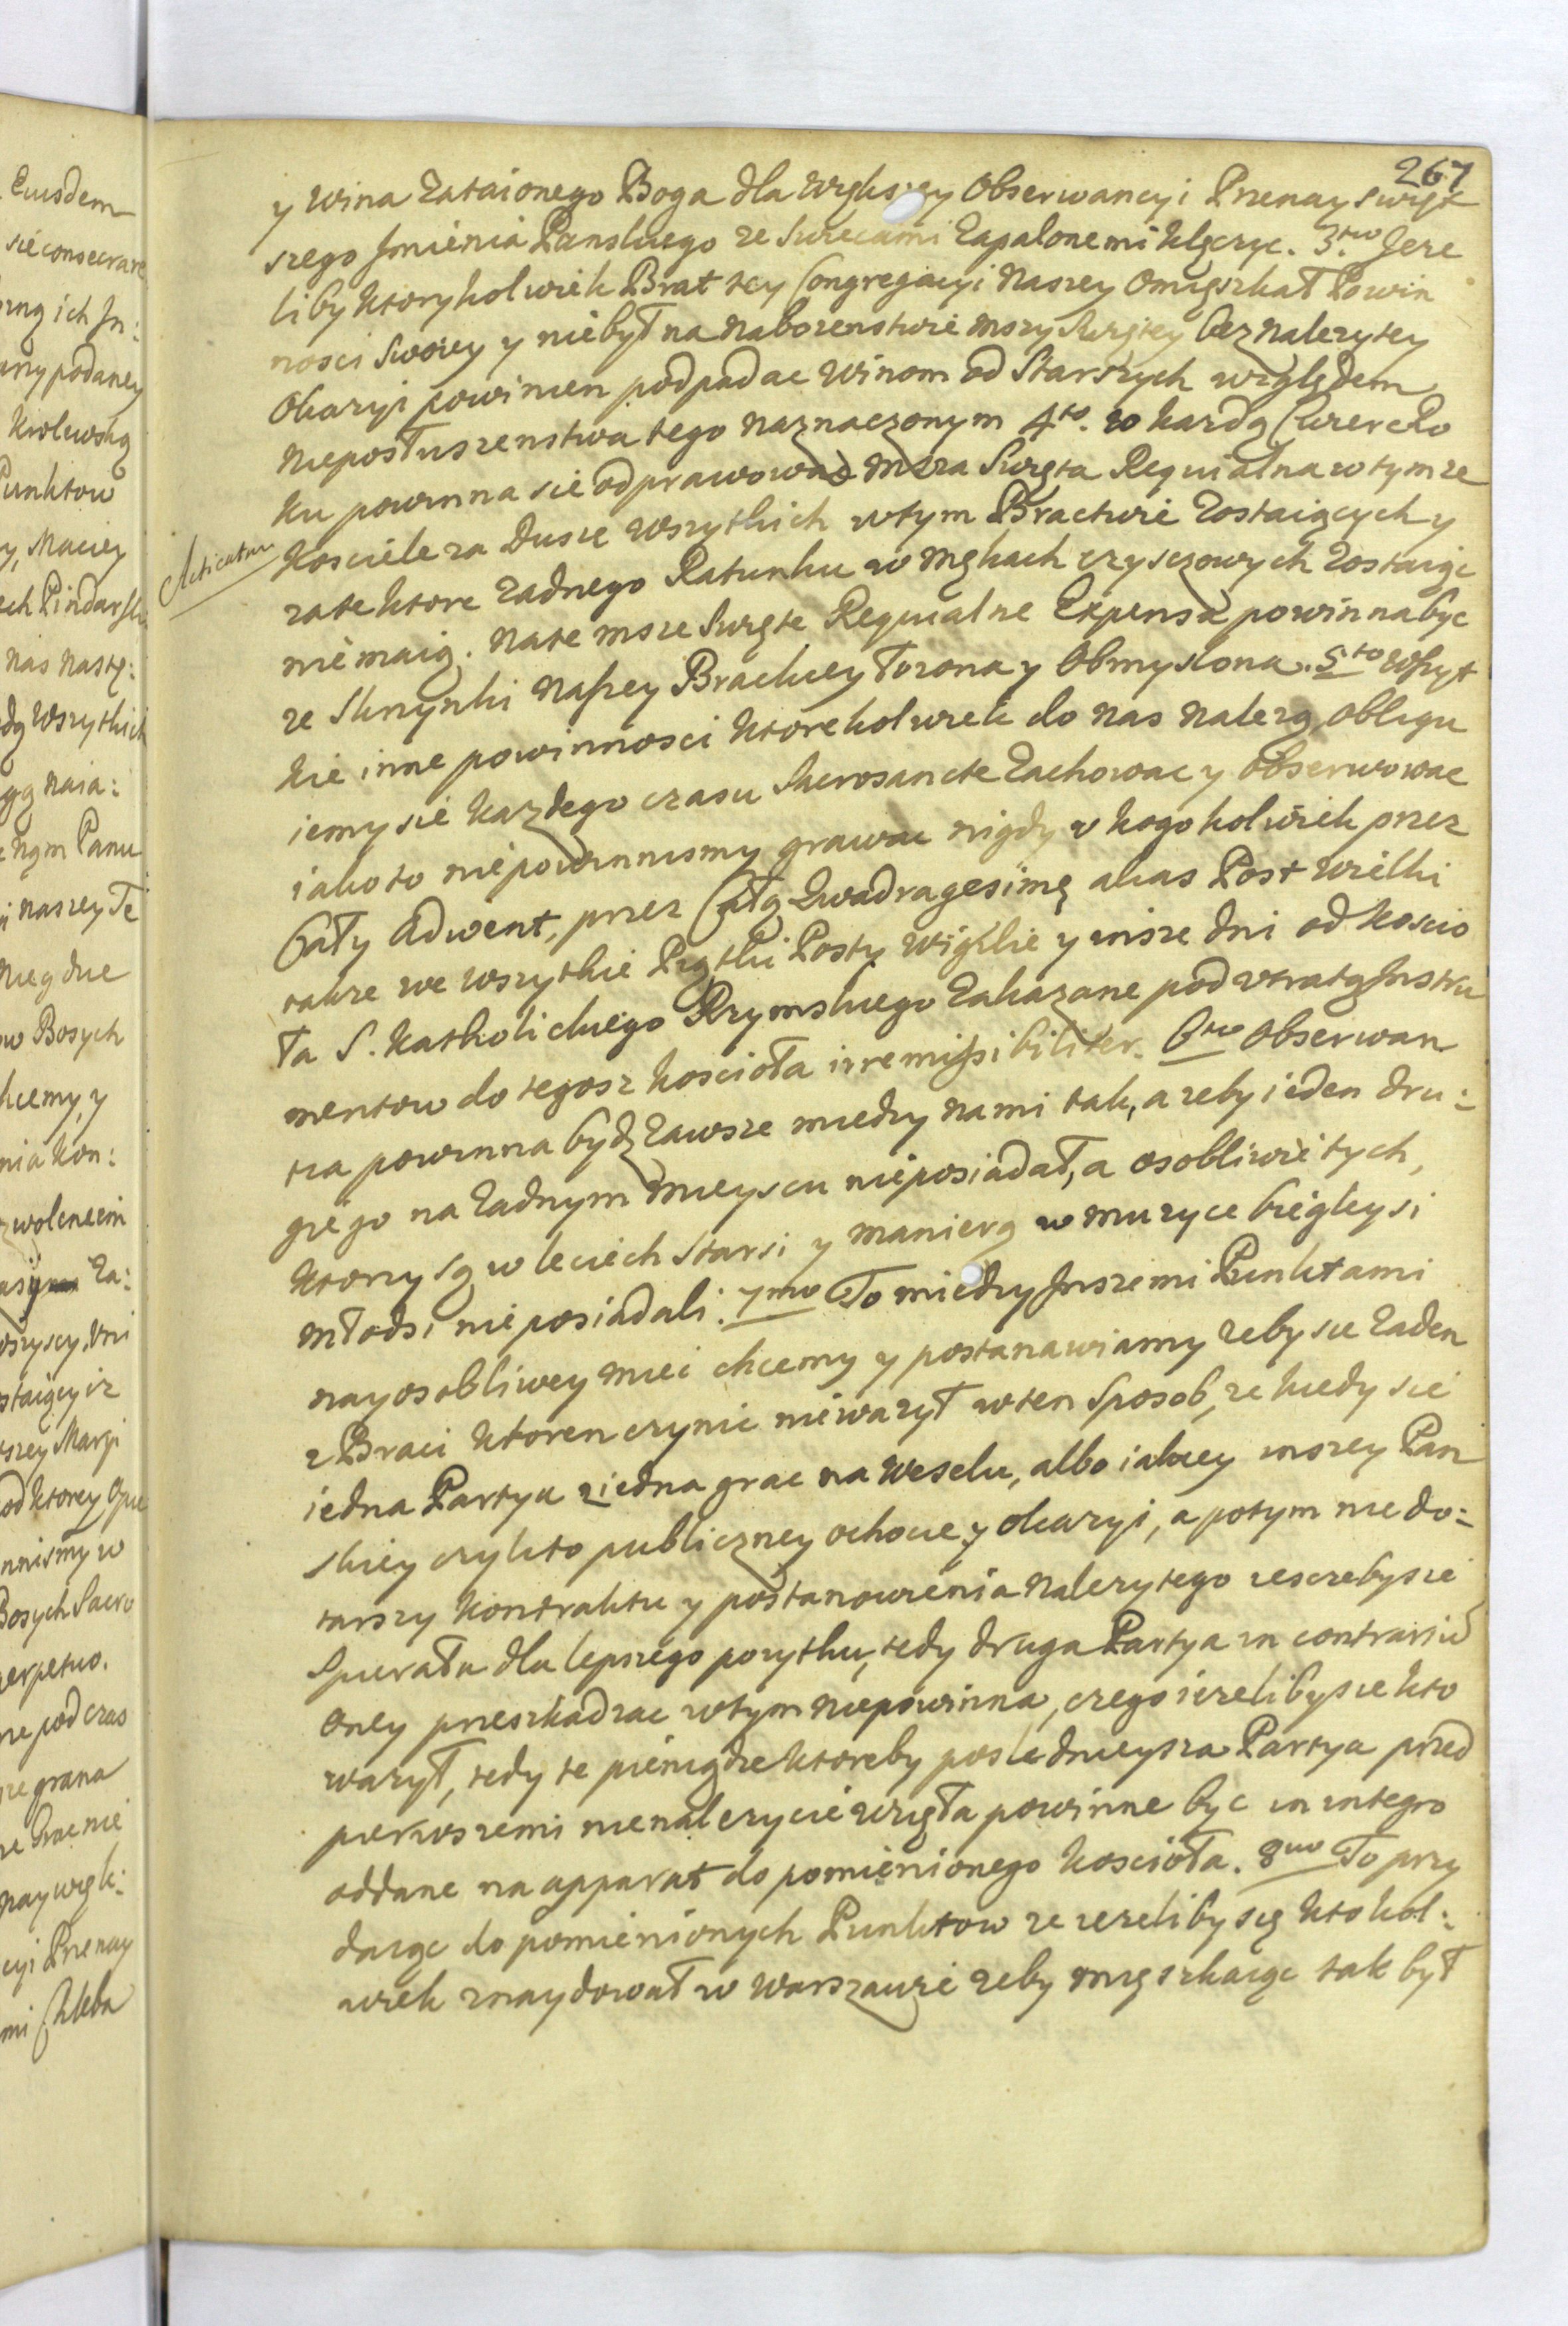 267
y Wina Zataionego Boga dla Większey Obserwancyi Przenayswięt
szego Jmienia Panskiego ze Swiecami Zapalonemi klęczyc. 3tio Jeze
liby ktorykolwiek Brat tey Congregacyi Naszey Omięszkał Powin
nosci Swoiey y niebył na Nabozenstwie mszy Swiętey bez nalezytey
Okazyi powinien podpadac Winom od Starszych względem
Nieposłuszenstwa tego naznaczonym 4to. w kazdą Czwercro
ku powinna sie odprawowac Msza Swięta Requialna w tymze
Kosciele za Dusze Wszytkich w tym Bractwie Zostaiących y
Acticatum
zate ktore Zadnego Ratunku w Mękach czysczowych Zostaiąc
nie maią. Nate msze Swięte Requialne Expensa powinna byc
ze Skrzynki Naszey Brackiey Łozona y Obmyslona. 5to Wszyt
kie inne powinnosci ktorekolwiek do nas Nalezą, obligu
iemy sie kazdego czasu Sacrosancte Zachowac y Obserwowac
iako to niepowinnismy grawac nigdy v kogokolwiek przez
Cały Adwent, przez Całą Quadragesimę alias Post Wielki
takze we wszytkie Piątki Posty Wigilie y insze dni od koscio
ła S. Katholickiego Rzymskiego Zakazane pod vtratą Jnstru
mentow do tegosz koscioła irremissibiliter. 6to Obserwan
tia powinna bydz Zawsze miedzy nami tak, a zeby ieden dru:
giego na Zadnym mieyscu nieposiadał, a osobliwie tych,
ktorzy są w leciech Starsi y manierą w muzyce biegleysi
młodsi nie posiadali. 7mo To miedzy Jnszemi Punktami
nayosobliwey miec chcemy y postanawiamy zeby sie Zaden
z Braci ktoren czynic niewazył w ten Sposob, ze kiedy sie
iedna Partya ziedna grac na Weselu, albo iakiey inszey Pan
skiey czykto publiczney ochocie y okazyi, a potym niedo:
tarszy kontraktu y postanowienia Nalezytego ieszczebysie
Spierała dla lepszego pozytku, tedy druga Partya in contrariũ
oney przeszkadzac w tym niepowinna, czego iezelibysie kto
wazył, tedy te pieniądze ktoreby posledniejsza Partya przed
pierwszemi nienalezycie wzięła powinne byc in integro
oddane na apparat do pomienionego Kosciola. 8vo To przy
daiąc do pomienionych Punktow ze iezeliby się ktokol:
wiek znaydował w Warszawie zeby mięszkaiąc tak był